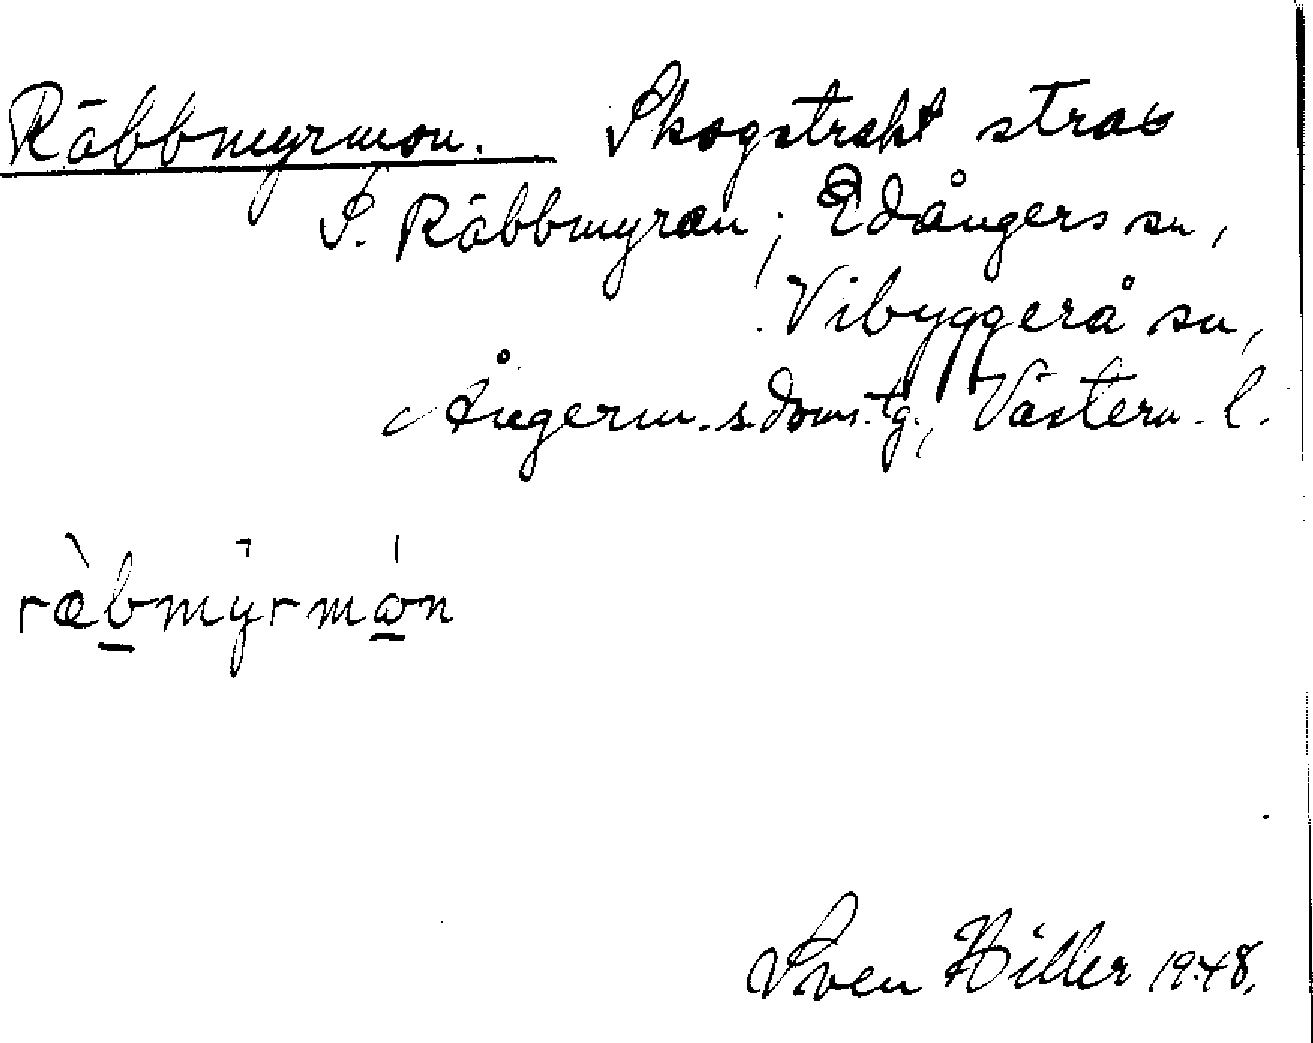 Räbbmyrmon. Skogstrakt strax
S. Räbbmyran; Edångers sn,
Vibyggerå sn,
Ångerm.s.doms.tg., Västern. l.
ræ̀bmy̌rmón
Sven Hiller 1948.